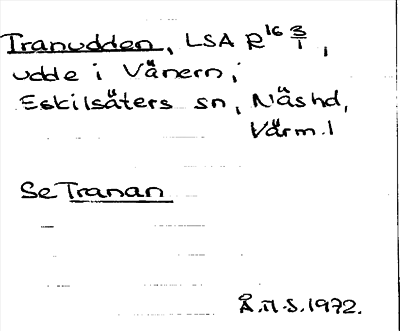 Tranudden, LSA R16 3/1,
udde i Vänern;
Eskilsäters sn, Näs hd,
Värm. l
Se Tranan
Å.N.S. 1972.